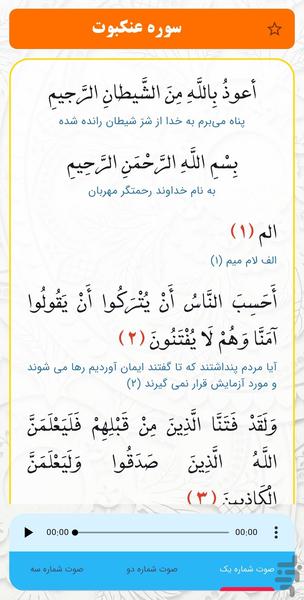 سوره عنکبوت
أعوذُ بِاللَّهِ مِنَ الشَّيطانِ الرَّجيمِ
پناه می‌برم به خدا از شرّ شیطان رانده شده
بِسْمِ اللَّهِ الرَّحْمَنِ الرَّحِيمِ
به نام خداوند رحمتگر مهربان
الم (۱)
الف لام میم (۱)
أَحَسِبَ النَّاسُ أَنْ يُتْرَكُوا أَنْ يَقُولُوا
آمَنَّا وَهُمْ لَا يُفْتَنُونَ (۲)
آیا مردم پنداشتند که تا گفتند ایمان آوردیم رها می شوند
و مورد آزمایش قرار نمی گیرند (۲)
وَلَقَدْ فَتَنَّا الَّذِينَ مِنْ قَبْلِهِمْ فَلَيَعْلَمَنَّ
اللَّهُ الَّذِينَ صَدَقُوا وَلَيَعْلَمَنَّ
الْكَاذِبِينَ (۳)
00:00 00:00
صوت شماره یک صوت شماره دو صوت شماره سه